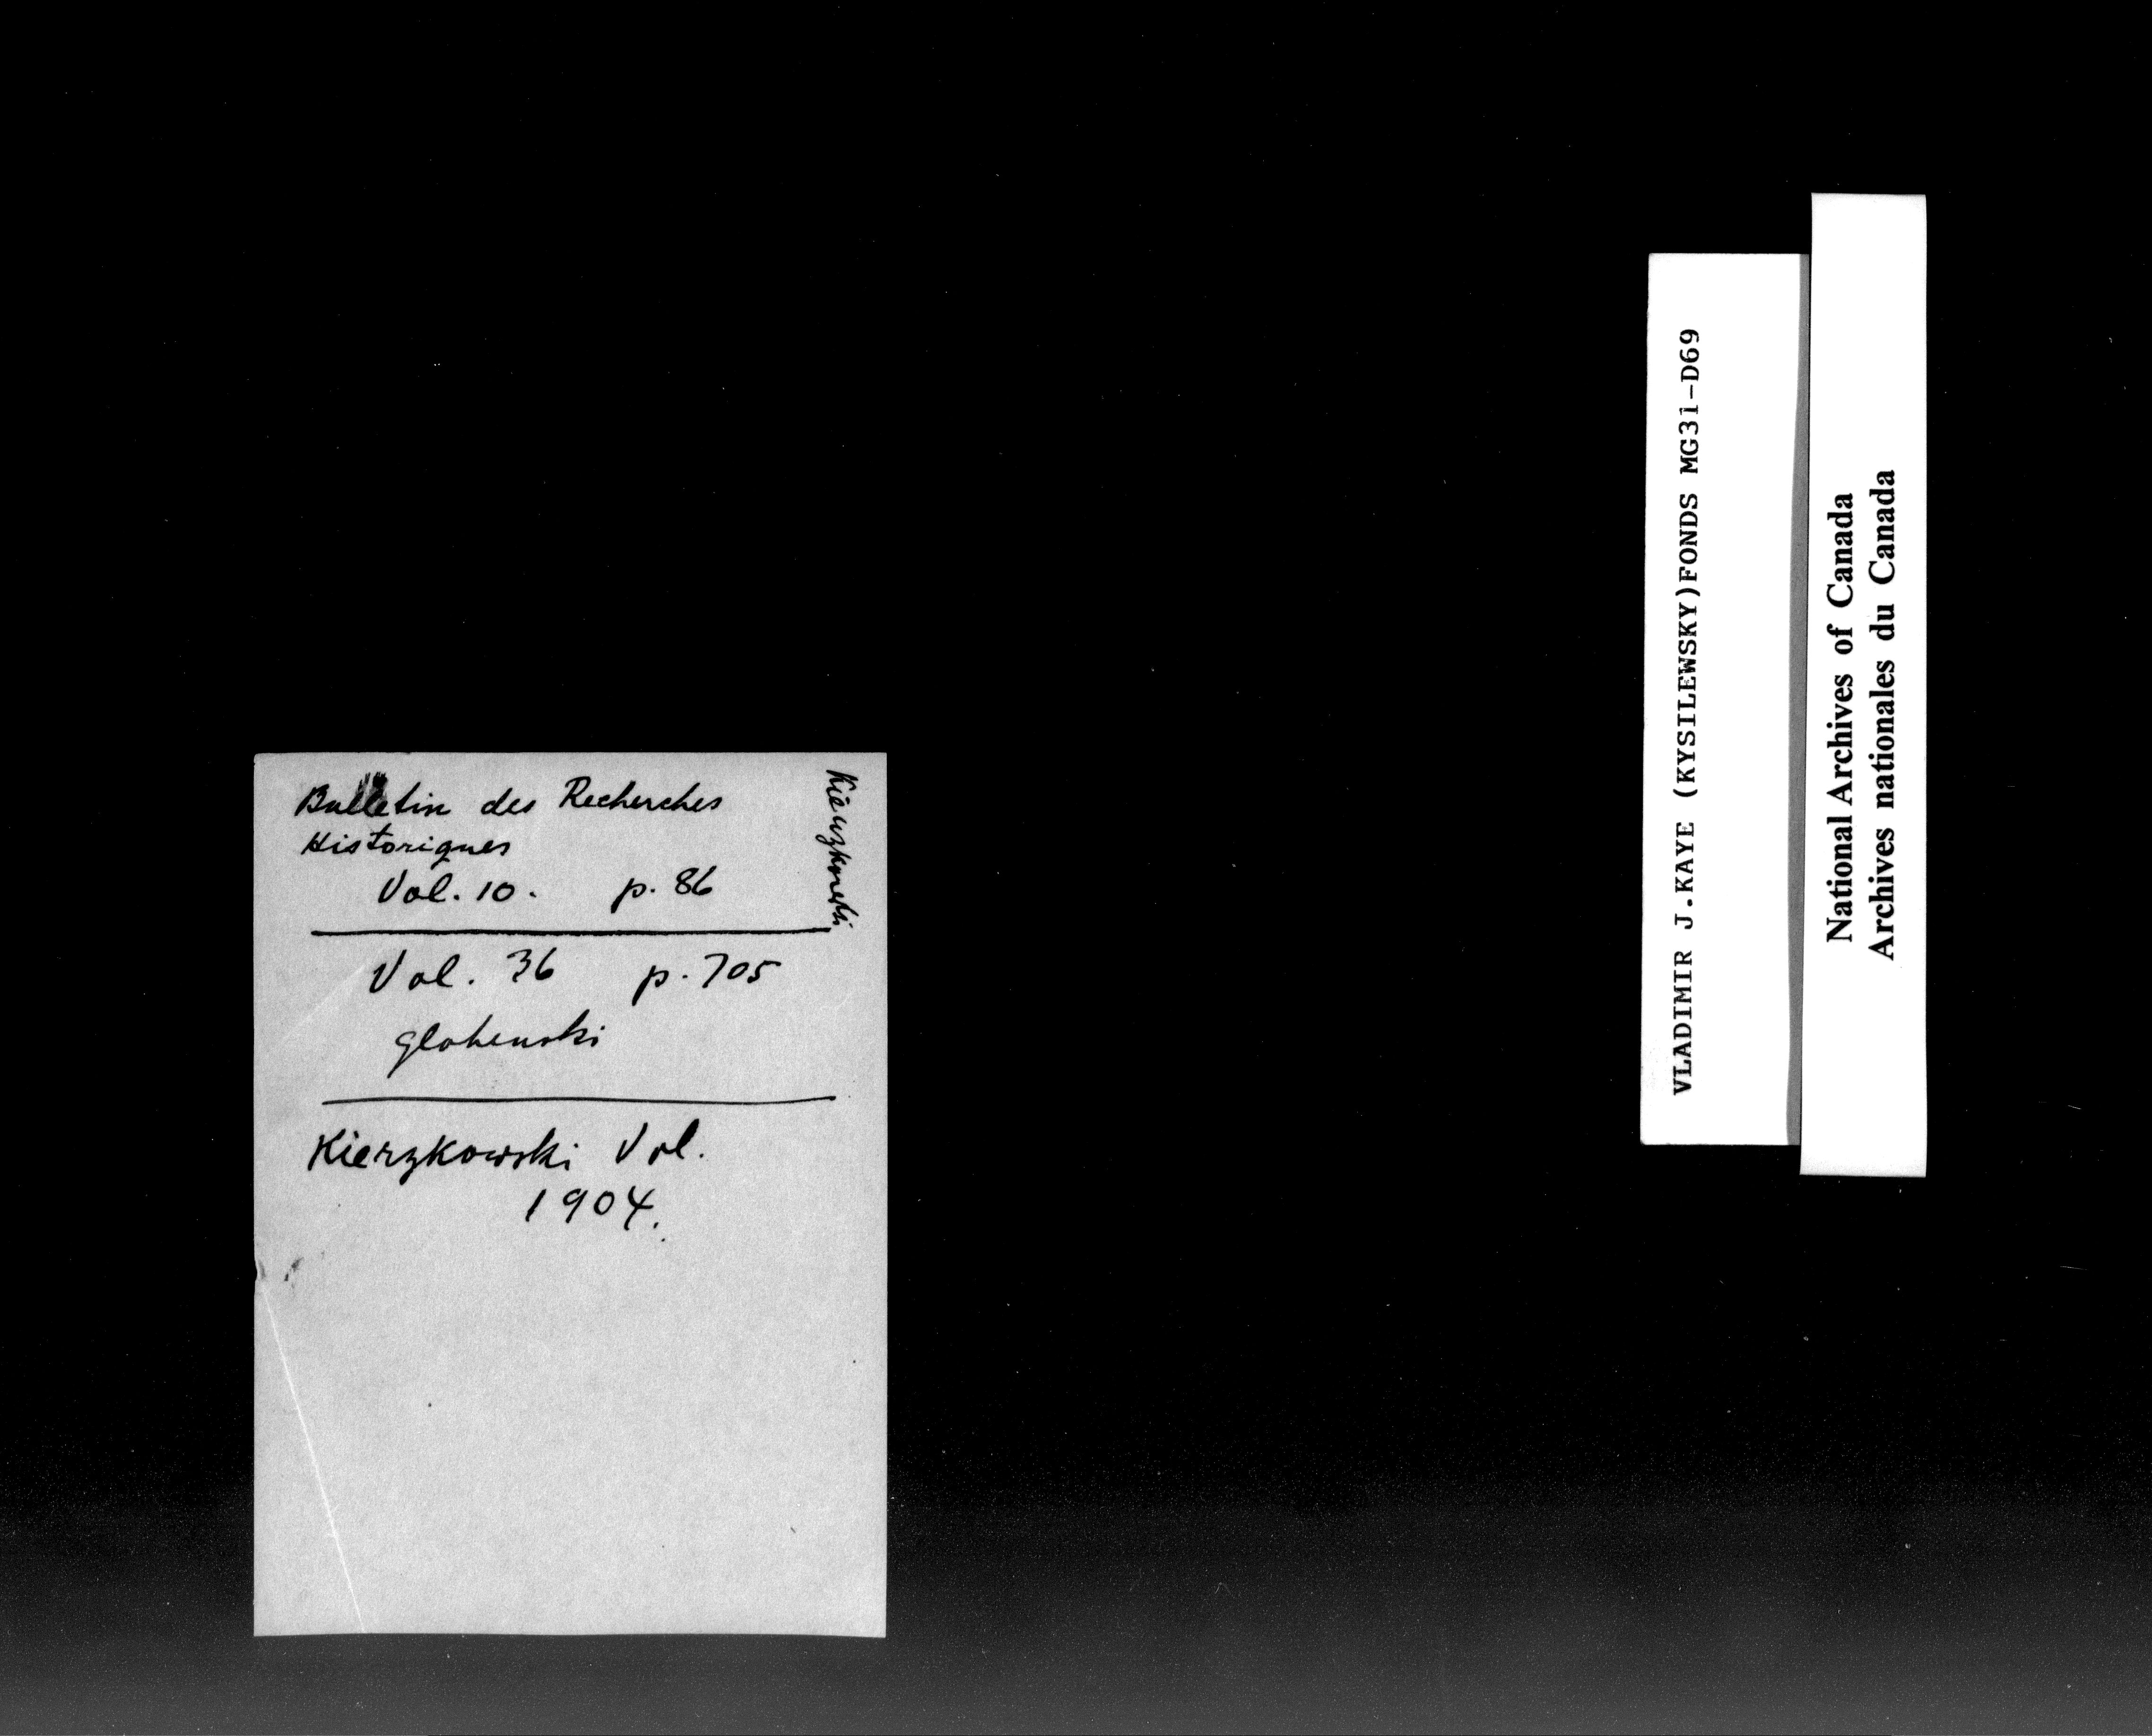 Bulletin des Recherches
Historiques
Vol. 10. p. 86
Kierzkowski
Vol. 36 p. 705
Globenski
Kierzkowski Vol.
1904.
VLADIMIR J.KAYE (KYSILEWSKY)FONDS MG31-D69
National Archives of Canada
Archives nationales du Canada